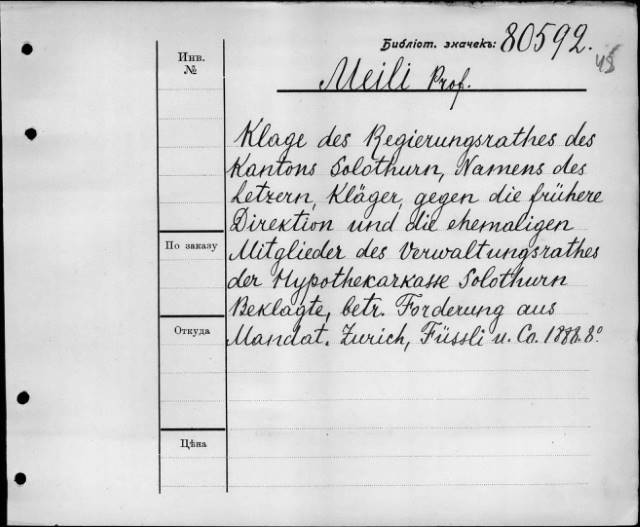 Библіот. значекъ: 80592.
48
Инв. №
Meili Prof.
Klage des Regierungsrathes des
Kantons Solothurn, Namens des
Letzern, Kläger, gegen die frühere
Direktion und die ehemaligen
Mitglieder des Verwaltungsrathes
der Hypothekarkasse Solothurn
Beklagte, betr. Forderung aus
Mandat. Zurich, Füssli u. Co. 1888. 8º
По заказу
Откуда
Цѣна